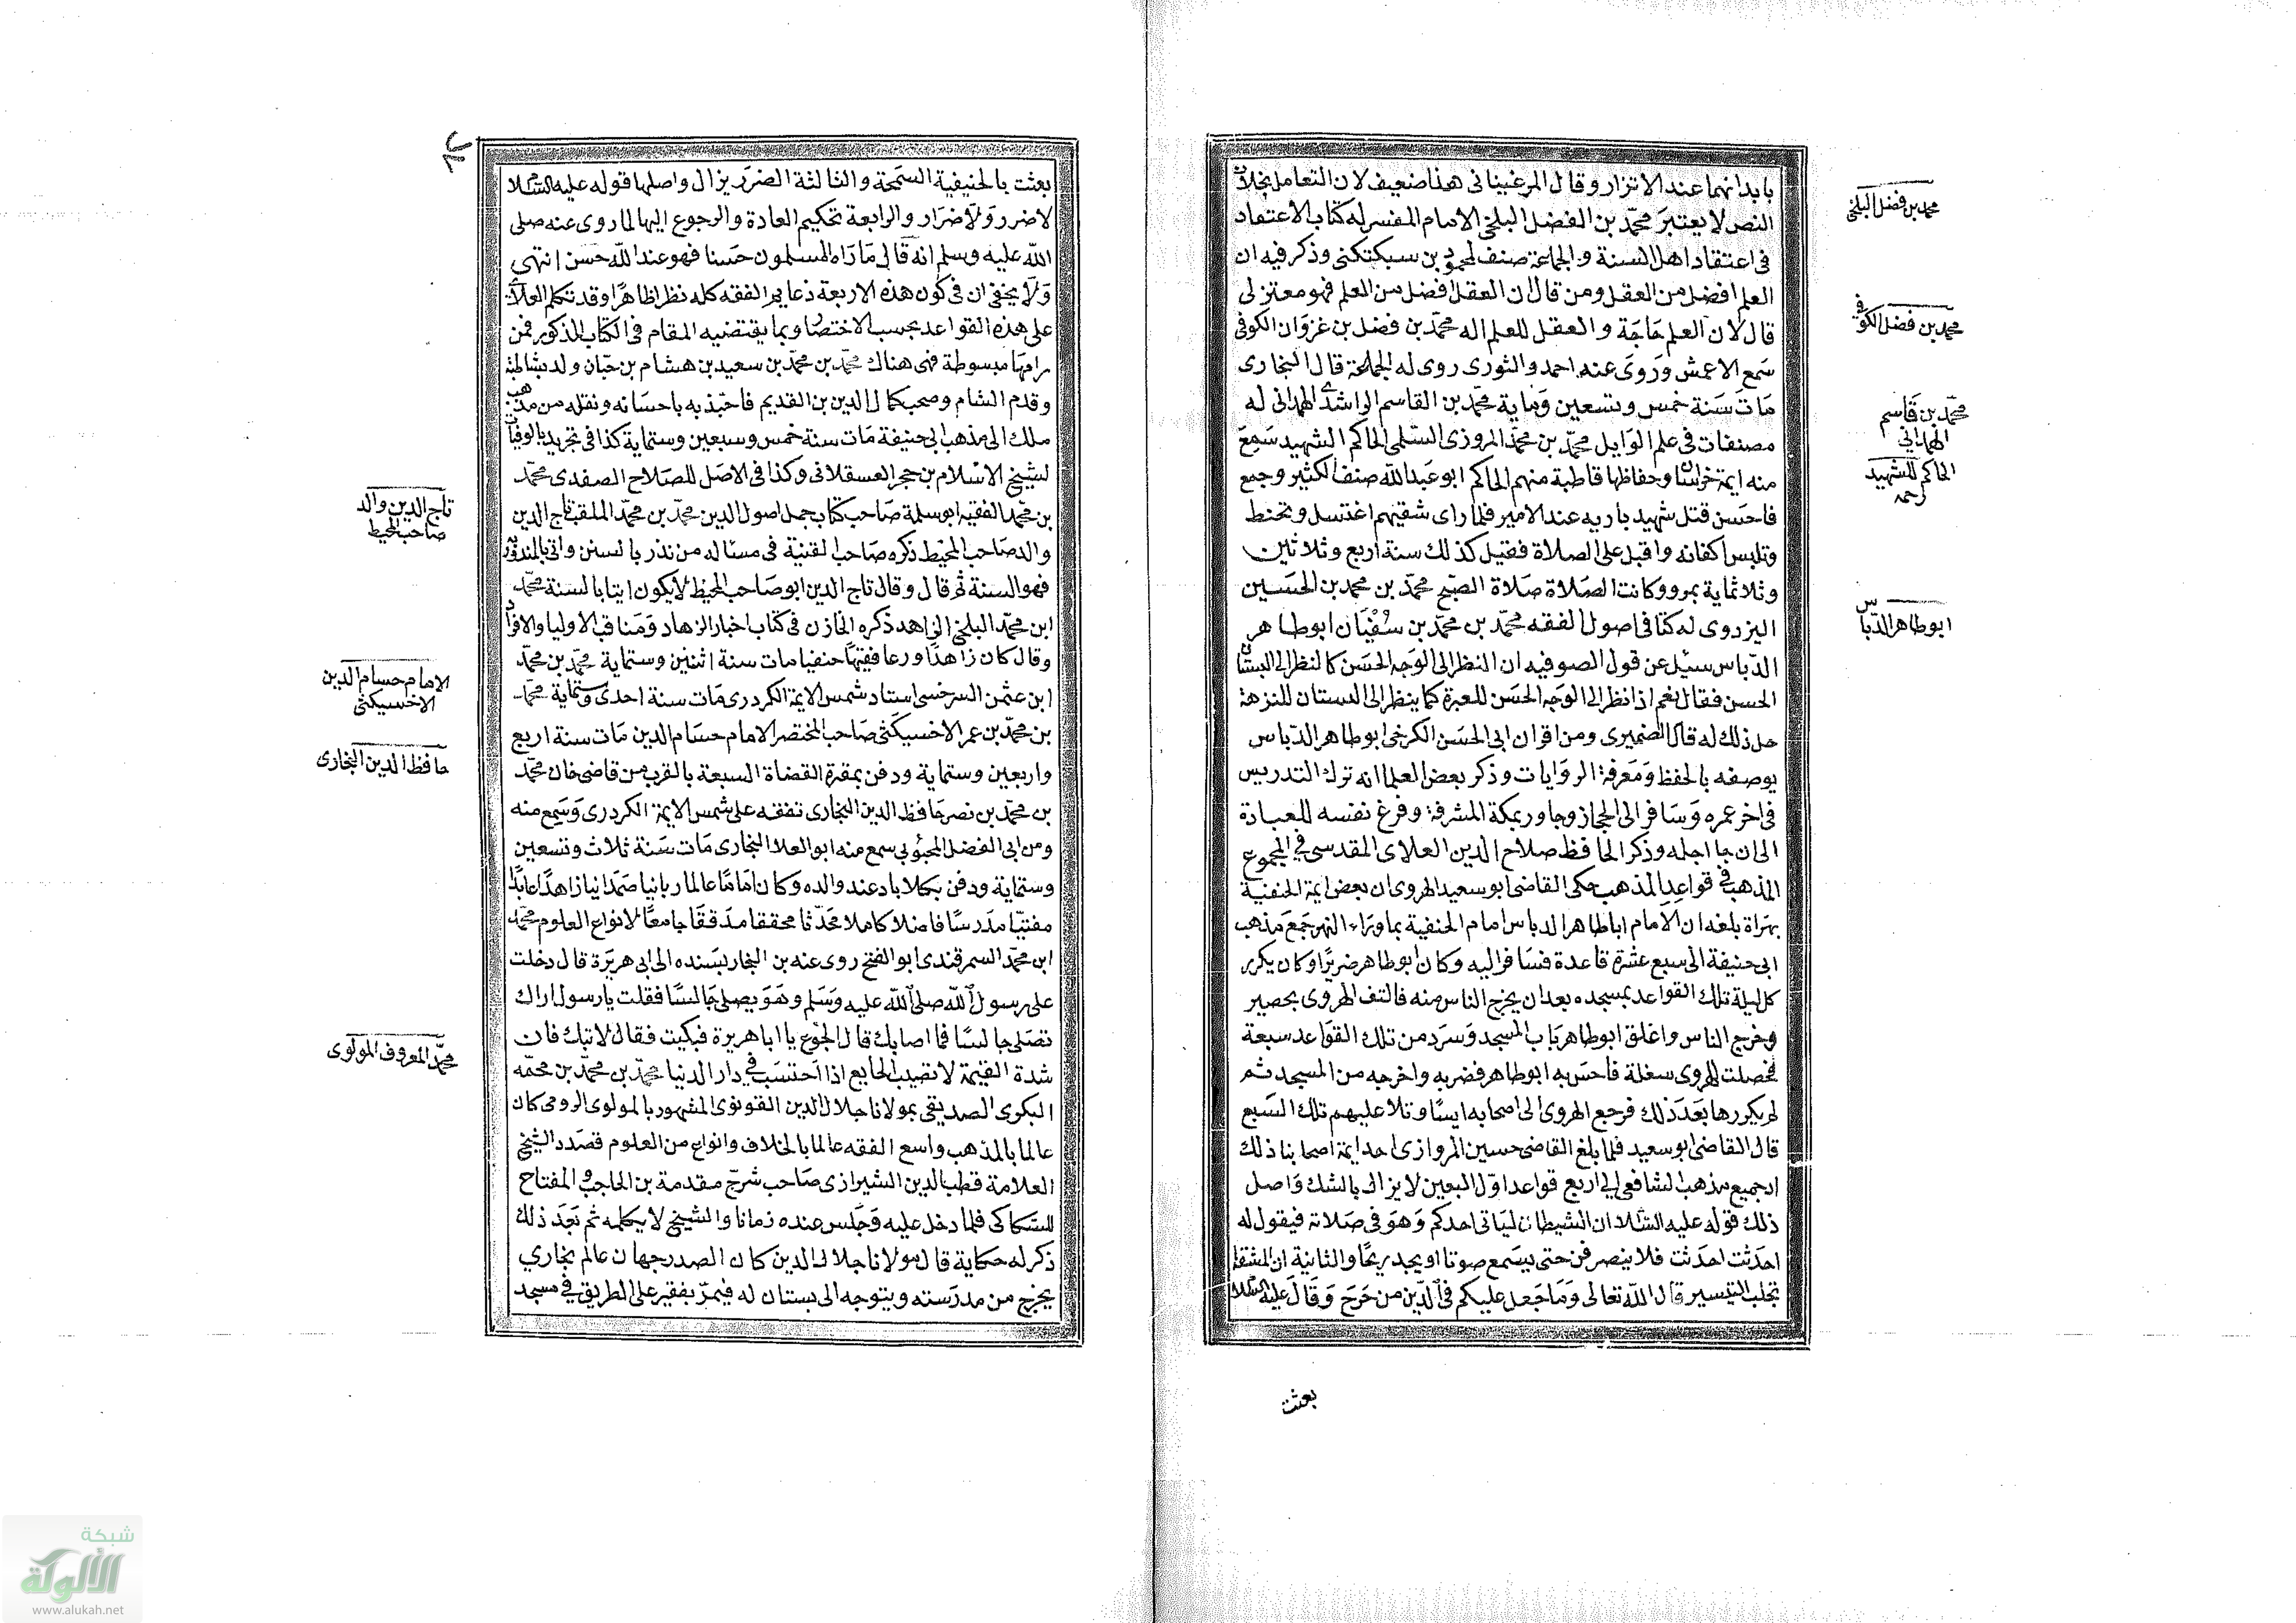 بابدانهما عند الاتزار وقال المرغيناني هذا ضعيف لان التعامل بخلاف
النص لا يعتبر محمد بن الفضل البلخي الامام المفسر له كتاب الاعتقاد
في اعتقاد اهل السنة والجماعة صنف لمحمود بن سبكتكني وذكر فيه ان
العلم افضل من العقل ومن قال ان العقل افضل من العلم فهو معتزلي
قال لان العلم حاجة والعقل للعلم اله محمد بن فضل بن غزوان الكوفي
سمع الاعمش وروى عنه احمد والثوري روى له الجماعة قال البخاري
مات سنة خمس وتسعين وماية محمد بن القاسم الهمداني له
مصنفات في علم الوايل محمد بن محمد المروزي السلمي الحاكم الشهيد سمع
منه ايمة خراسان وحفاظها قاطبة منهم الحاكم ابو عبد الله صنف الكثير وجمع
فاحسن قتل شهيد باريه عند الامير فلما راى شقيهم اغتسل وتحنط
وتلبس اكفانه واقبل على الصلاة فقتل كذلك سنة اربع وثلاثين
وثلاثماية بمرو وكانت الصلاة صلاة الصبح محمد بن محمد بن الحسين
البزدوي له كتا في اصول الفقه محمد بن محمد بن سفيان ابو طاهر
الدباس سئيل عن قول الصوفيه ان النظر الى الوجه الحسن كالنظر الى البستان
الحسن فقال نعم اذا نظر الى الوجه الحسن للعبرة كما ينظر الى البستان للنزهة
حل ذلك له قال الضميري ومن اقران ابي الحسن الكرخي ابو طاهر الدباس
يوصفه بالحفظ ومعرفة الروايات وذكر بعض العلما انه ترك التدريس
في اخر عمره وسافر الى الحجاز وجاور بمكة المشرفة وفرغ نفسه للعبادة
الى ان جا اجله وذكر الحافظ صلاح الدين العلاي المقدسي في المجموع
المذهب في قواعد المذهب حكى القاضي ابو سعيد الهروي ان بعض ايمة الحنفية
بهراة بلغه ان الامام اباطاهر الدباس امام الحنفية بما وراء النهر جمع مذهب
ابي حنيفة الى سبع عشرة قاعدة فسافر اليه وكان ابو طاهر ضريرا وكان يكرر
كل ليلة تلك القواعد بمسجده بعد ان يخرج الناس منه فالتف الهروي بحصير
وخرج الناس واغلق ابو طاهر باب المسجد وسرد من تلك القواعد سبعة
فحصلت للهروي سعلة فاحس به ابو طاهر فضربه واخرجه من المسجد ثم
لم يكررها بعد ذلك فرجع الهروي الى اصحابه ايسا وتلا عليهم تلك السبع
قال القاضي ابو سعيد فلما بلغ القاضي حسين المروازي احد ايمة اصحابنا ذلك
رد جميع مذهب الشافعي الى اربع قواعد اول اليقين لا يزال بالشك واصل
ذلك قوله عليه السلام ان الشيطان لياتي احدكم وهو في صلاته فيقول له
احدثت احدثت فلا ينصرفن حتى يسمع صوتا او يجد ريحا والثانية ان المشقة
تجلب التيسير قال الله تعالى وما جعل عليكم في الدين من حرج وقال عليه السلام
بعثت
محمد بن فضل البلخي
محمد بن فضل الكوفي
محمد بن قاسم
الهمداني
الحاكم الشهيد
رحمه
ابو طاهر الدباس
بعثت بالحنيفية السمحة والثالثة الضرر يزال واصلها قوله عليه السلام
لا ضرر ولا ضرار والرابعة تحكيم العادة والرجوع اليها لما روي عنه صلى
الله عليه وسلم انه قال ما رآه المسلمون حسنا فهو عند الله حسن انتهى
ولا يخفى ان في كون هذه الاربعة دعايم الفقه كله نظر اظاهرا وقد تكلم العلاي
على هذه القواعد بحسب الاختصار وبما يقتضيه المقام في الكتاب المذكور فمن
رامها مبسوطة فهي هناك محمد بن محمد بن سعيد بن هشام بن حبان ولد بشاطبة
وقدم الشام وصحب كمال الدين بن القديم فاجتذبه باحسانه ونقله من مذهب
ملك الى مذهب ابي حنيفة مات سنة خمس وسبعين وستماية كذا في تجريد الوفيات
لشيخ الاسلام بن حجر العسقلاني وكذا في الاصل للصلاح الصفدي محمد
بن محمد الفقيه ابو سلمة صاحب كتاب جمل اصول الدين محمد بن محمد الملقب تاج الدين
والد صاحب المحيط ذكره صاحب القنية في مساله من نذر بالسنن واتى بالمنذور به
فهو السنة ثم قال وقال تاج الدين ابو صاحب المحيط لا يكون ايتا بالسنة محمد
ابن محمد البلخي الزاهد ذكره الخازن في كتاب اخبار الزهاد ومناقب الاوليا والافراد
وقال كان زاهدا ورعا فقيها حنفيا مات سنة اثنين وستماية محمد بن محمد
ابن عثمن السرخسي استاد شمس الايمة الكردري مات سنة احدى وستماية محمد
بن محمد بن عمر الاخسيكثي صاحب المختصر الامام حسام الدين مات سنة اربع
واربعين وستماية ودفن بمقبرة القضاة السبعة بالقرب من قاضي خان محمد
بن محمد بن نصر حافظ الدين البخاري تفقه على شمس الايمة الكردري وسمع منه
ومن ابي الفضل المحبوبي سمع منه ابو العلا البخاري مات سنة ثلاث وتسعين
وستماية ودفن بكلاباد عند والده وكان اماما عالما ربانيا صمدانيا زاهدا عابدا
مفتيا مدرسا فاضلا كاملا محدثا محققا مدققا جامعا لانواع العلوم محمد
ابن محمد السمرقندي ابو الفتح روى عنه بن النجار بسنده الى ابي هريرة قال دخلت
على رسول الله صلى الله عليه وسلم وهو يصلي جالسا فقلت يا رسول اراك
تصلي جالسا فما اصابك قال الجوع يا ابا هريرة فبكيت فقال لا تبك فان
شدة القيمة لا تصيب الجايع اذا احتسب في دار الدنيا محمد بن محمد بن محمد
البكري الصديقي بمولانا جلال الدين القونوي المشهور بالمولوي الرومي كان
عالما بالمذهب واسع الفقه عالما بالخلاف وانواع من العلوم قصده الشيخ
العلامة قطب الدين الشيرازي صاحب شرح مقدمة بن الحاجب والمفتاح
للسكاكي فلما دخل عليه وجلس عنده زمانا والشيخ لا يكلمه ثم بعد ذلك
ذكر له حكاية قال مولانا جلال الدين كان الصدر جهان عالم بخاري
يخرج من مدرسته ويتوجه الى بستان له فيمر بفقير على الطريق في مسجد
تاج الدين والد
صاحب المحيط
الامام حسام الدين
الاخسيكثي
حافظ الدين البخاري
محمد المعروف المولوي
شبكة
الألوكة
www.alukah.net